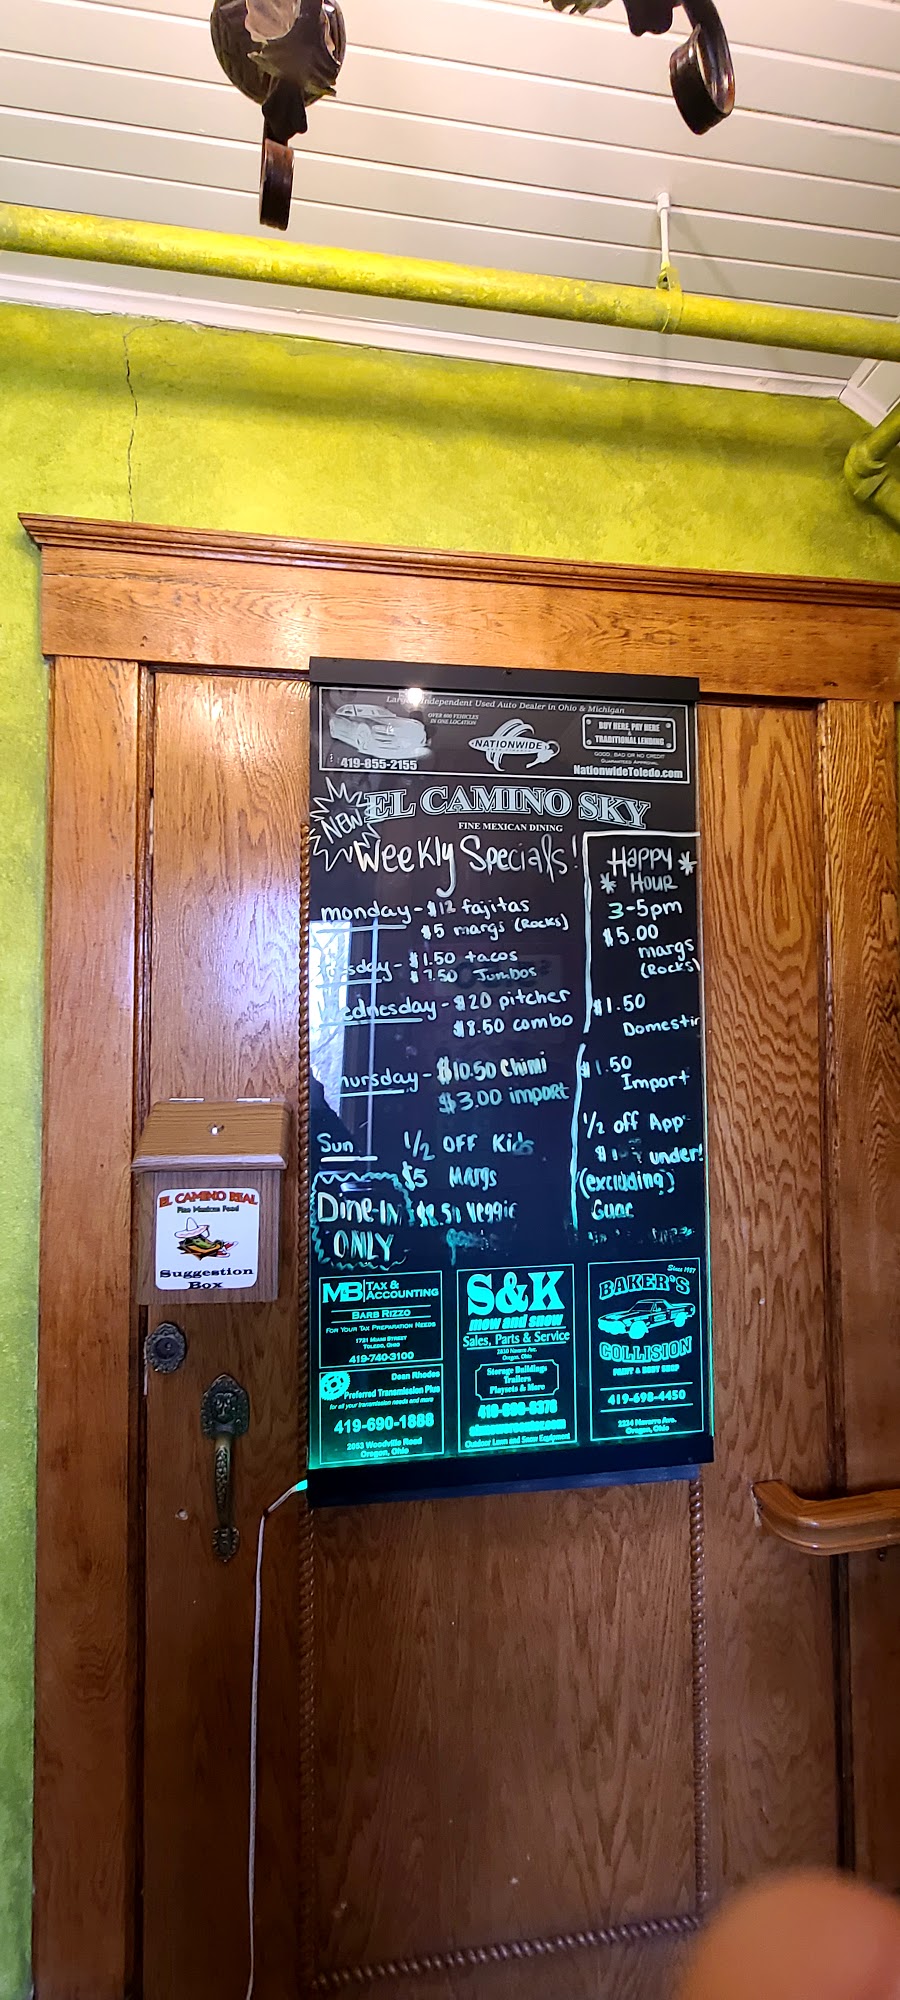 Largest Independent Used Auto Dealer in Ohio & Michigan
OVER 800 VEHICLES
IN ONE LOCATION
NATIONWIDE
BUY HERE PAY HERE
&
TRADITIONAL LENDING
GOOD, BAD OR NO CREDIT
GUARANTEED APPROVAL
419-855-2155
NationwideToledo.com
NEW
EL CAMINO SKY
FINE MEXICAN DINING
Weekly Specials!
monday - $12 fajitas
$5 margs (Rocks)
$1.50 tacos
$7.50 Jumbos
Wednesday - $20 pitcher
$8.50 combo
Thursday - $10.50 Chimi
$3.00 import
Sun 1/2 OFF Kids
$5 Margs
Dine-In $8.50 Veggie
ONLY
* Happy *
Hour
3-5pm
$5.00
margs
(Rocks)
$1.50
Domestic
$1.50
Import
1/2 off App
under!
(excluding)
Guac
EL CAMINO REAL
Fine Mexican Food
Suggestion
Box
MB TAX &
ACCOUNTING
BARB RIZZO
FOR YOUR TAX PREPARATION NEEDS
1721 MIAMI STREET
TOLEDO, OHIO
419-740-3100
Dean Rhodes
Preferred Transmission Plus
for all your transmission needs and more
419-690-1888
2053 Woodville Road
Oregon, Ohio
S&K
mow and snow
Sales, Parts & Service
2830 Navarre Ave.
Oregon, Ohio
Storage Buildings
Trailers
Playsets & More
Outdoor Lawn and Snow Equipment
Since 1987
BAKER'S
COLLISION
PAINT & BODY SHOP
419-698-4450
2234 Navarre Ave.
Oregon, Ohio